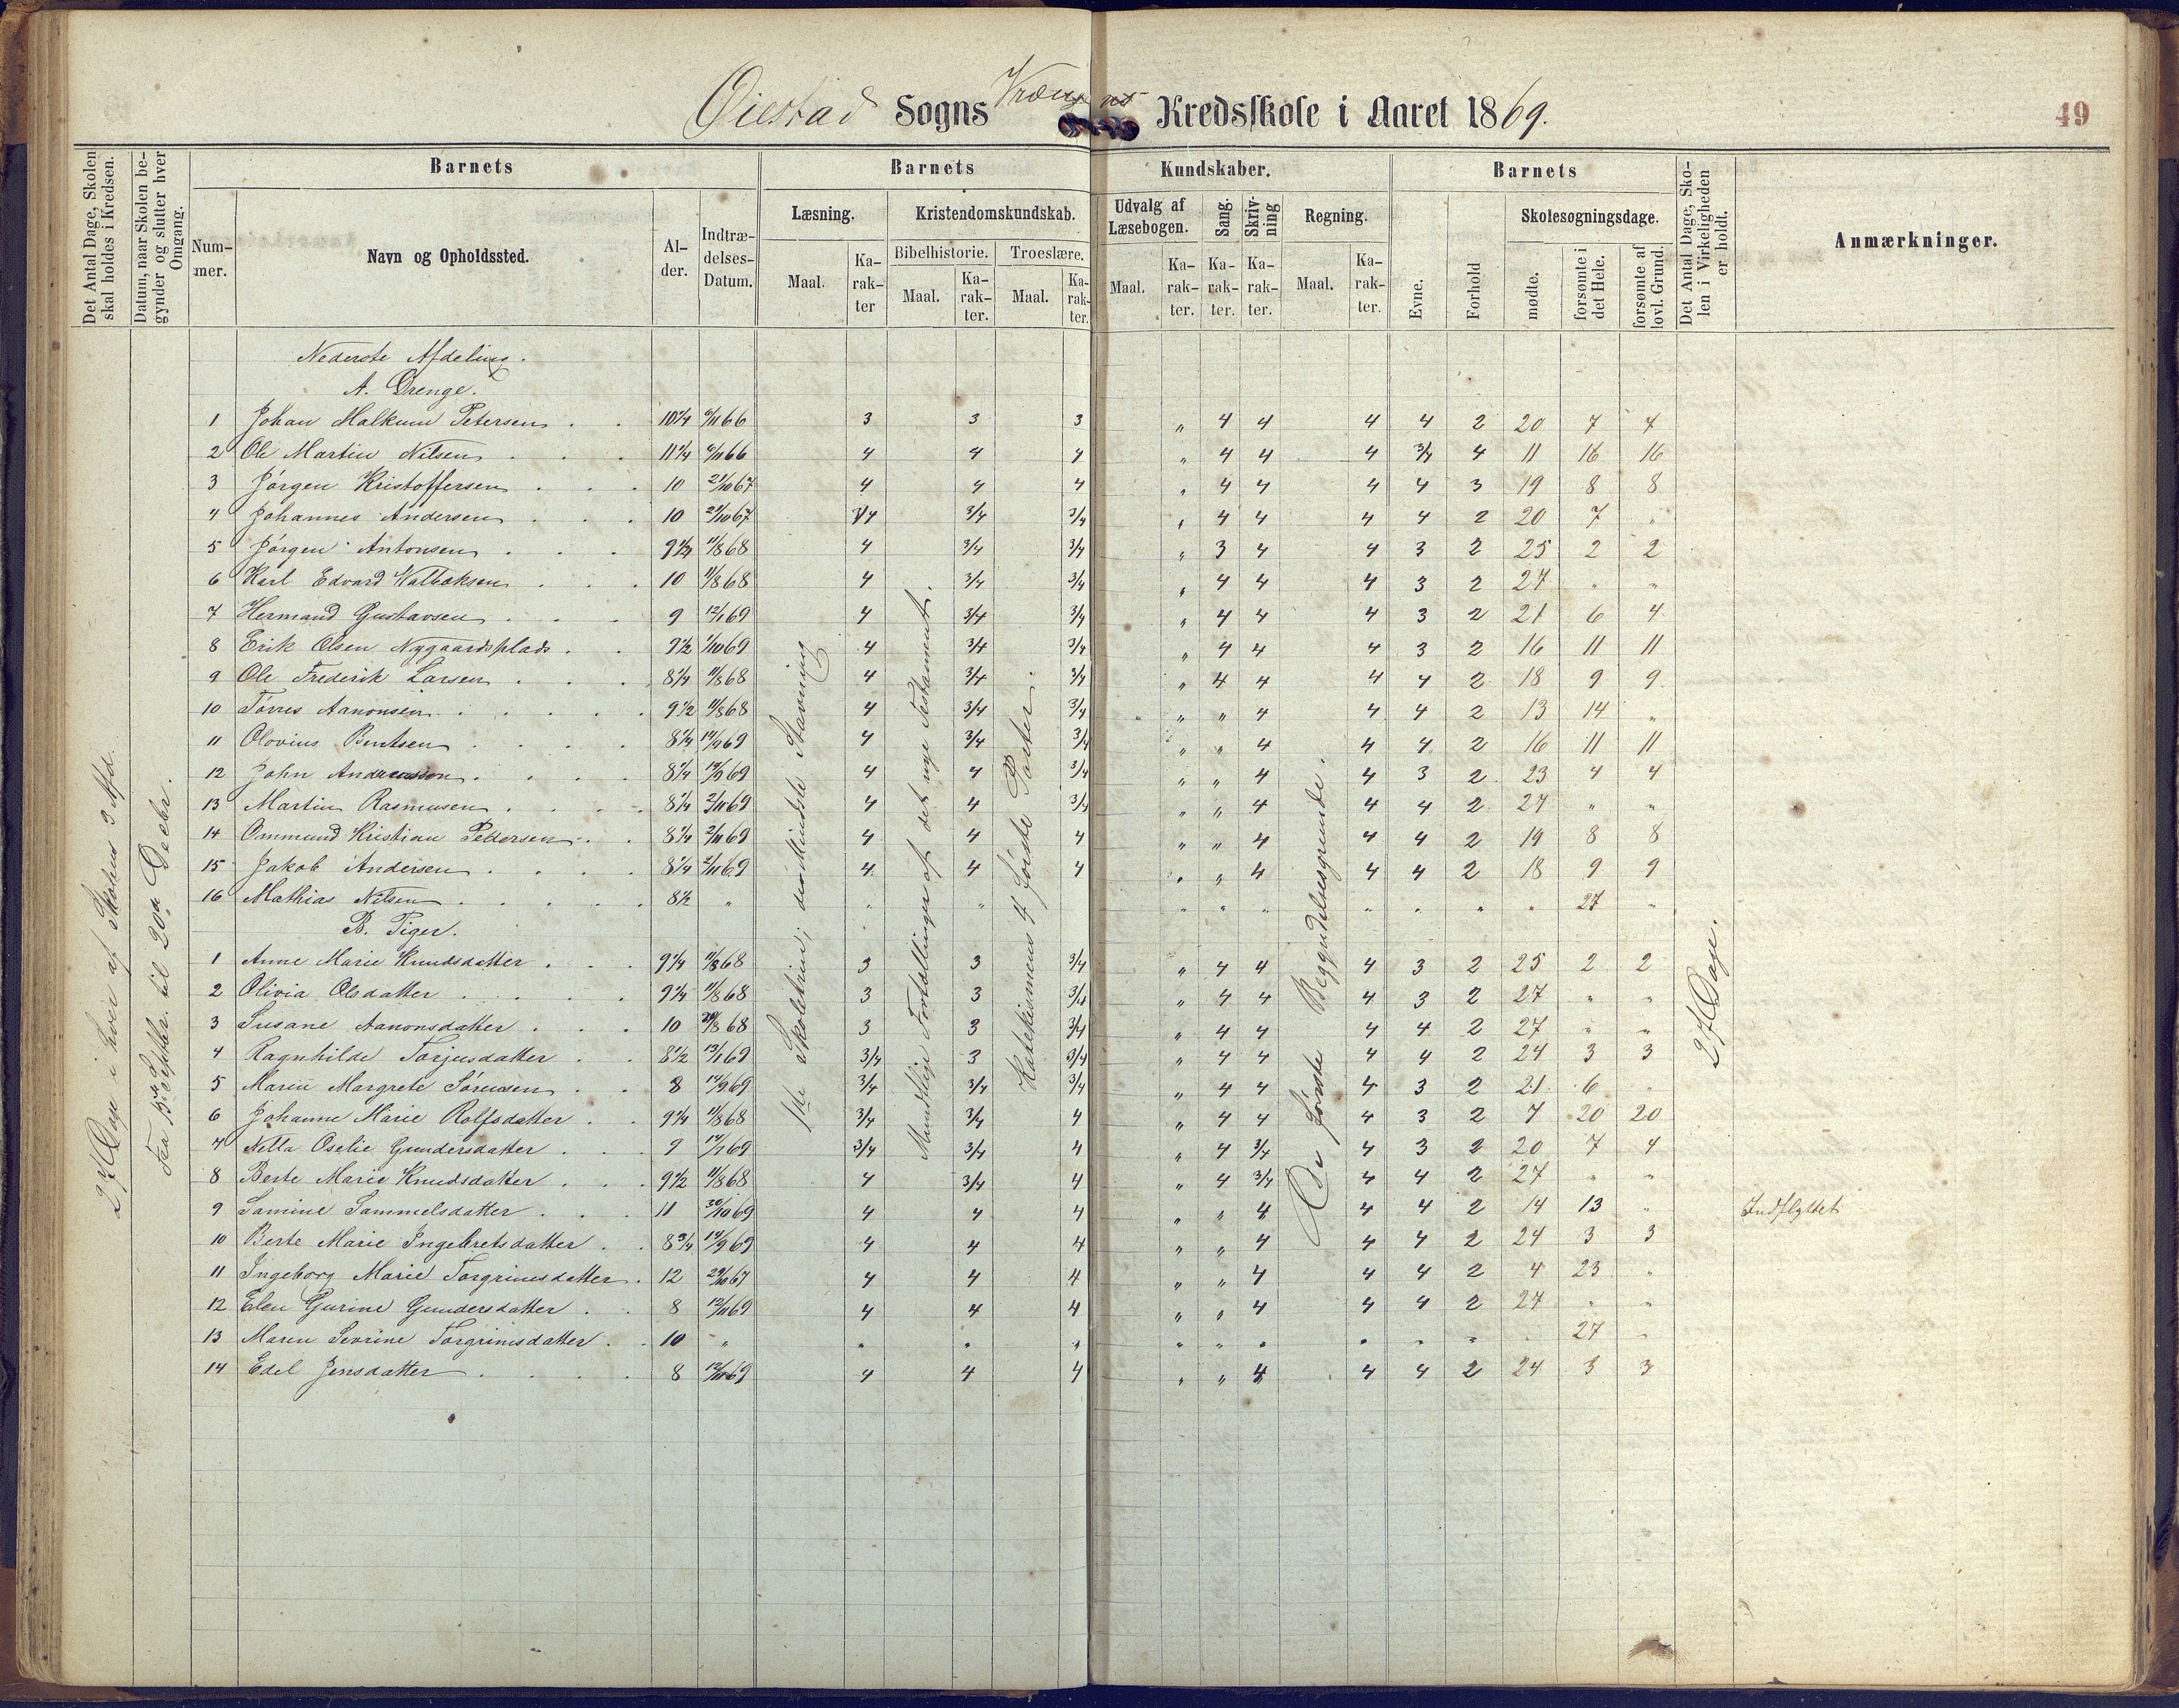 Øiestad Sogns Kredsskole i Aaret 1869.
49
Det Antal Dage, Skolen skal holdes i Kredsen.
Datum, naar Skolen begynder og slutter hver Omgang.
Barnets
Nummer.
Navn og Opholdssted.
Alder.
Indtrædelses-Datum.
Barnets Kundskaber.
Læsning.
Maal.
Karakter
Kristendomskundskab.
Bibelhistorie.
Maal.
Karakter.
Troeslære.
Maal.
Karakter.
Udvalg af Læsebogen.
Maal.
Karakter.
Sang.
Karakter.
Skrivning
Karakter.
Regning.
Maal.
Karakter.
Barnets
Evne.
Forhold
Skolesøgningsdage.
mødte.
forsømte i det Hele.
forsømte af lovl. Grund.
Det Antal Dage, Skolen i Virkeligheden er holdt.
Anmærkninger.
27 Dage i hver af Skolens 3 Afd.
til 20de Decbr.
1ste Skoletrin; den Mindste Stavning
Mundtlige Fortællinger af det nye Testamente.
Katekismens 4 første Parter.
De første Begyndelsesgrunde.
27 Dage.
Nederste Afdeling.
A. Drenge.
1 Johan Malkum Petersen 10¼ 6/11 66 3 3 3 " 4 4 4 4 2 20 7 7
2 Ole Martin Nilsen 11¼ 6/11 66 4 4 4 " 4 4 4 3/4 4 11 16 16
3 Jørgen Kristoffersen 10 21/10 67 4 4 4 " 4 4 4 4 3 19 8 8
4 Johannes Andersen 10 21/10 67 3/4 3/4 3/4 " 4 4 4 4 2 20 7 "
5 Jørgen Antonsen 9½ 11/8 68 4 3/4 3/4 " 3 4 4 3 2 25 2 2
6 Karl Edvard 10 11/8 68 4 3/4 3/4 " 4 4 4 3 2 27 " "
7 Hermand Gustavsen 9 12/1 69 4 3/4 3/4 " 4 4 4 3 2 21 6 4
8 Erik Olsen Nygaardsplads 9½ 1/10 69 4 3/4 3/4 " 4 4 4 3 2 16 11 11
9 Ole Frederik Larsen 8¼ 11/8 68 4 3/4 3/4 " 4 4 4 4 2 18 9 9
10 Tørres Aanonsen 9½ 11/8 68 4 3/4 3/4 " " 4 4 4 2 13 14 "
11 Olovius Bentsen 8¼ 14/9 69 4 3/4 3/4 " " 4 4 4 2 16 11 11
12 John Andreassen 8¼ 14/9 69 4 4 3/4 " " 4 4 3 2 23 4 4
13 Martin Rasmusen 8¼ 2/11 69 4 4 3/4 " " 4 4 4 2 27 " "
14 Ommund Kristian Pedersen 8¼ 2/11 69 4 4 4 " " 4 4 4 2 19 8 8
15 Jakob Andersen 8¼ 2/11 69 4 4 4 " " 4 4 4 2 18 9 9
16 Mathias Nilsen 8½ " " " " " " " " " " 27 "
B. Piger.
1 Anne Marie Knudsdatter 9¼ 11/8 68 3 3 3/4 " 4 4 4 3 2 25 2 2
2 Olivia Olsdatter 9¼ 11/8 68 3 3 3/4 " 4 4 4 3 2 27 " "
3 Susane Aanonsdatter 10 8 68 3 3 3/4 " 4 4 4 4 2 27 " "
4 Ragnhilde Torjusdatter 8½ 13/1 69 3/4 3 3/4 " 4 4 4 4 2 24 3 3
5 Maren Margrete Sørensen 8 14/9 69 3/4 3/4 3/4 " 4 4 4 3 2 21 6 "
6 Johanne Marie Rolfsdatter 9¼ 11/8 68 3/4 3/4 4 " 4 4 4 3 2 7 20 20
7 Nella Oselie Gundersdatter 9 69 3/4 3/4 4 " 4 3/4 4 3 2 20 7 4
8 Berte Marie Knudsdatter 9½ 11/8 68 4 3/4 4 " 4 3/4 4 4 2 27 " "
9 Samine Sammelsdatter 11 20/10 69 4 4 4 " " 4 4 4 2 14 13 " Indflyttet
10 Berte Marie Ingebretsdatter 8¾ 14/9 69 4 4 4 " " 4 4 4 2 24 3 3
11 Ingeborg Marie Torgrimsdatter 12 29/10 67 4 4 4 " " 4 4 4 2 4 23 "
12 Elen Gurine Gundersdatter 8 12/11 69 4 4 4 " " 4 4 4 2 27 " "
13 Maren Sevrine Torgrimsdatter 10 " " " " " " " " " " " 27 "
14 Edel Jensdatter 8 12/11 69 4 4 4 " " 4 4 4 2 24 3 3